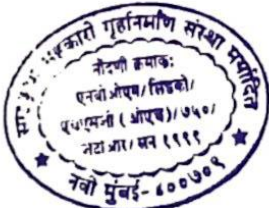 सहकारी गृहनिर्माण संस्था मर्यादित
नोंदणी क्रमांक:
एनबीओएम/सिडको/
एचएमजी (ओएच)/७५०/
जटीआर/सन १९९९
★ नवी मुंबई-४००७०९ ★